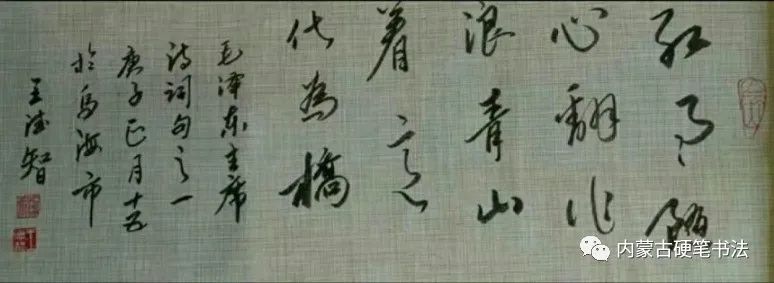 红雨随
心翻作
浪青山
着意
化為橋
毛泽东主席
诗词句之一
庚子正月十五
於乌海市
王德智
内蒙古硬笔书法